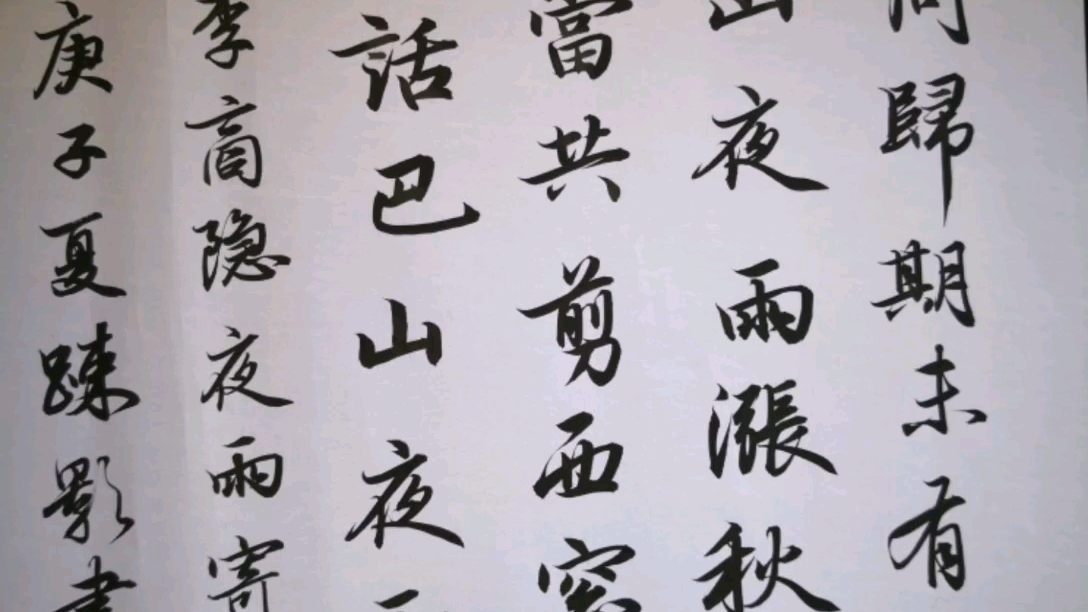 問歸期未有
山夜雨漲秋
當共剪西窗
話巴山夜雨
李商隐夜雨寄
庚子夏疎影書